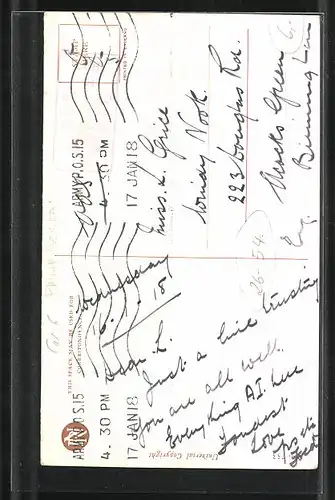 THIS SPACE MAY BE USED FOR
CORRESPONDENCE
ARMY P.O. S.15
4. 30 PM
17 JAN 18
ARMY P.O. S.15
4. 30 PM
17 JAN 18
Wednesday
16.1.18
Dear L.
Just a line trusting
you are all well.
Everything A.1. here
Fondest
Love
Fred
Miss. L. Grice
Windy Nook
223 Douglas Rd.
Acocks Green
Birmingham
Eng.
26-54
6.
Universal Copyright